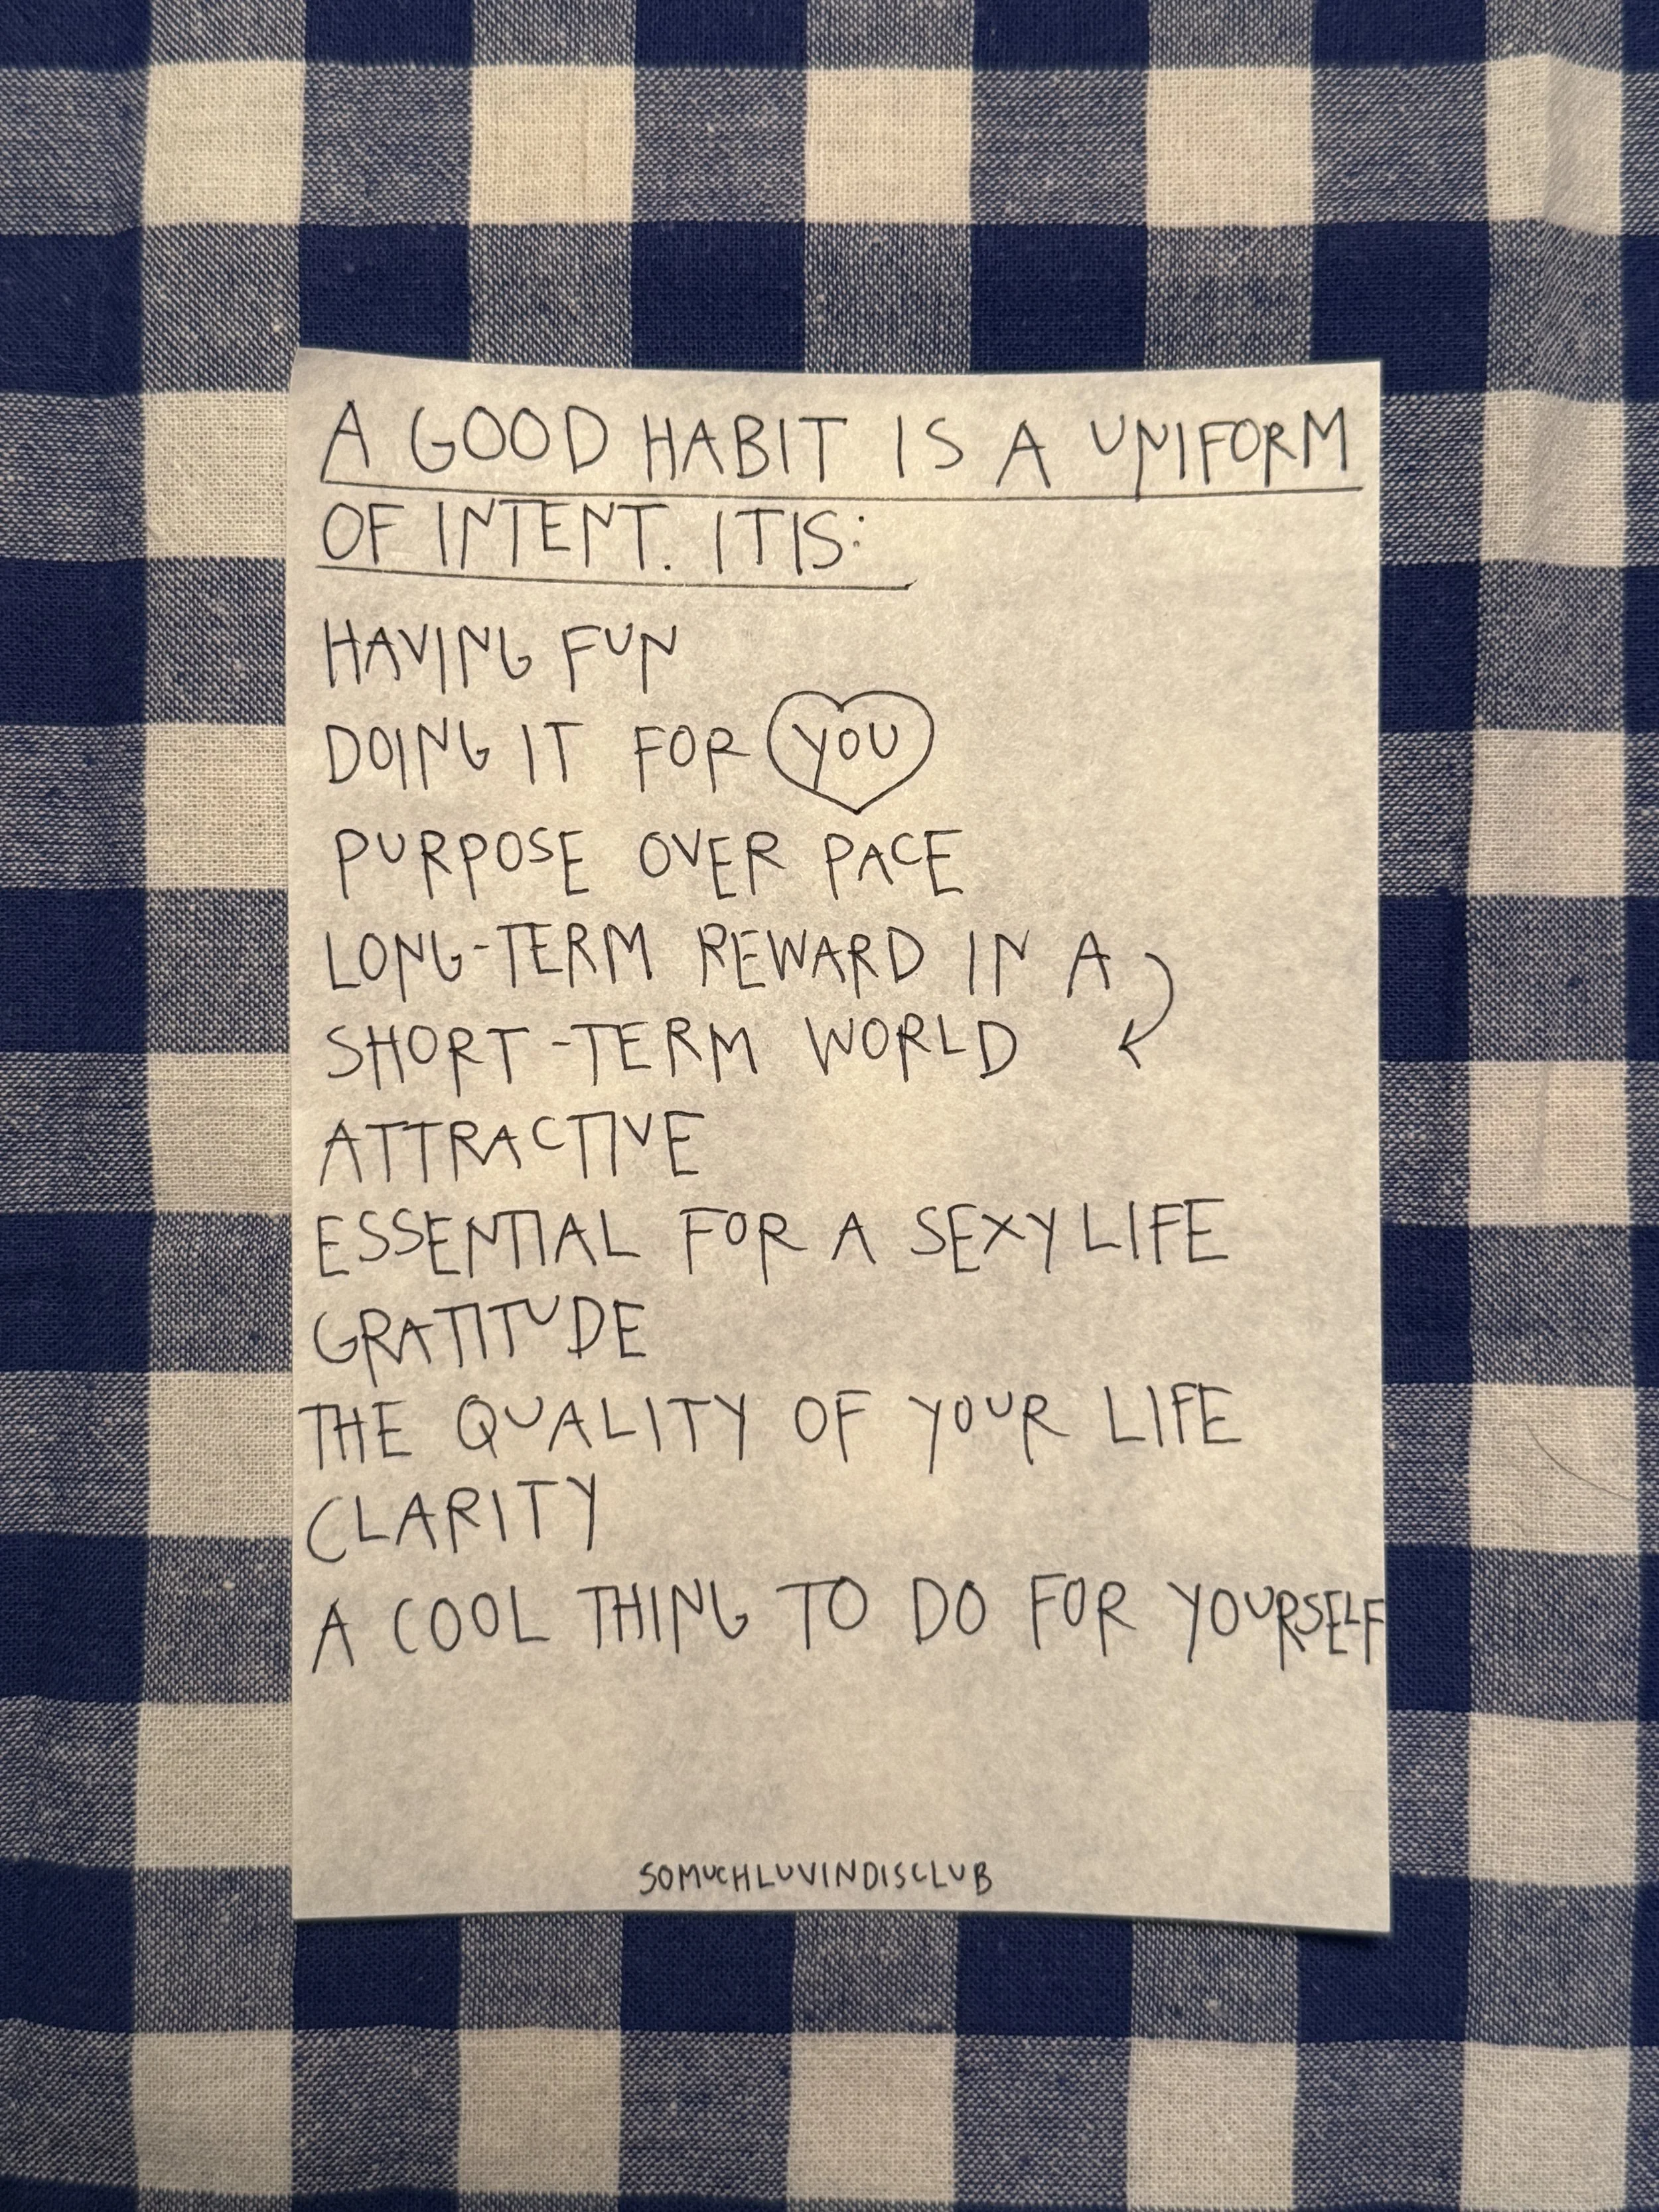 A GOOD HABIT IS A UNIFORM
OF INTENT. IT IS:
HAVING FUN
DOING IT FOR YOU
PURPOSE OVER PACE
LONG-TERM REWARD IN A
SHORT-TERM WORLD
ATTRACTIVE
ESSENTIAL FOR A SEXY LIFE
GRATITUDE
THE QUALITY OF YOUR LIFE
CLARITY
A COOL THING TO DO FOR YOURSELF
SOMUCHLUVINDISCLUB